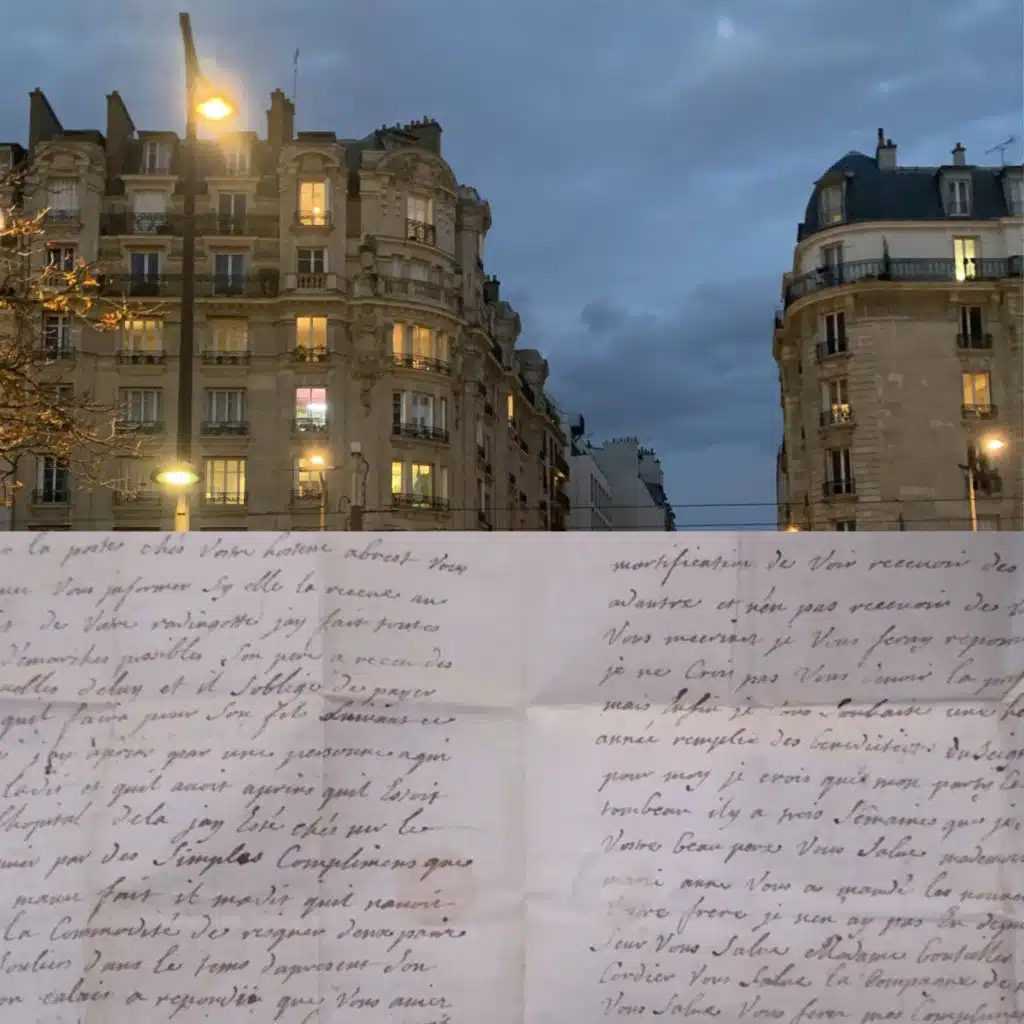 la poste chés Vostre hostesse abrest Vous
Vous jnformer Sy elle la receue au
de Votre radingotte jay fait toutes
démarches possibles Son pere a receu des
nouvelles deluy et il Soblige de payer
quil faira pour Son fils Suivant ce
apris par une personne
et quil avoit apris quil Estoit
lhopital dela jay Esté chés mr le
par des Simples Complimens que
fait il madit quil
la Commodité de risquer deux paire
Souliers dans le tems dapresent Son
calais a repondu que Vous aviez
mortification de Voir recevoir des
dautre et nên pas recevoir de
Vous je Vous feray
je ne Crois pas Vous la
mais Enfin je vous Souhaite une
année remplie des benedictions du Seig
pour moy je crois quil mon porté
tombeau il y a trois Semaines que
Vostre beau pere Vous Salue
marie anne Vous a mandé les
Vostre frere je nen ay pas En
Seur Vous Salue Madame
Cordier Vous Salue la Compagne de
Vous Salue Vous ferez mes Complimens